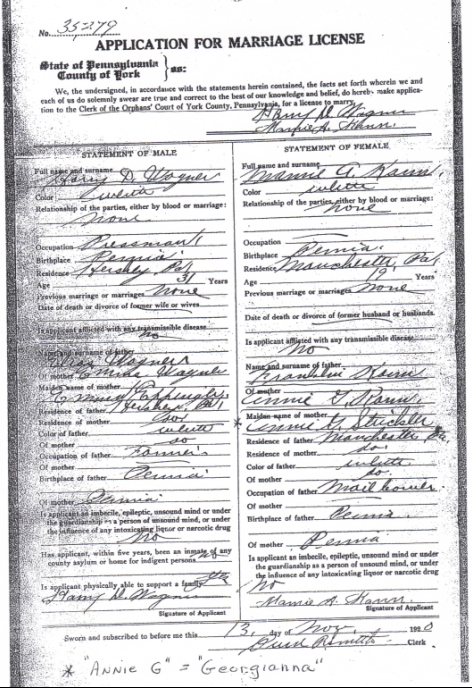 No. 35279
APPLICATION FOR MARRIAGE LICENSE
State of Pennsylvania
County of York } ss:
We, the undersigned, in accordance with the statements herein contained, the facts set forth wherein we and
each of us do solemnly swear are true and correct to the best of our knowledge and belief, do hereby make applica-
tion to the Clerk of the Orphans' Court of York County, Pennsylvania, for a license to marry.
Harry D. Wagner
Mamie A. Hann.
STATEMENT OF MALE
Full name and surname Harry D. Wagner
Color white
Relationship of the parties, either by blood or marriage:
None
Occupation Pressman
Birthplace Penna.
Residence Hershey Pa.
Age 31 Years
Previous marriage or marriages None
Date of death or divorce of former wife or wives
Is applicant afflicted with any transmissible disease
No
Name and surname of father
Wagner
Of mother Wagner
Maiden name of mother
Residence of father Hershey, Pa.
Of mother do.
Color of father white
Of mother do
Occupation of father Farmer
Of mother
Birthplace of father Penna.
Of mother Penna.
Is applicant an imbecile, epileptic, unsound mind or under
the guardianship as a person of unsound mind, or under
the influence of any intoxicating liquor or narcotic drug
No
Has applicant, within five years, been an inmate of any
county asylum or home for indigent persons No
Is applicant physically able to support a family Yes
Harry D. Wagner
Signature of Applicant
STATEMENT OF FEMALE
Full name and surname Mamie A.
Color white
Relationship of the parties, either by blood or marriage:
None
Occupation
Birthplace Penna.
Residence Manchester, Pa.
Age 19 Years
Previous marriage or marriages None
Date of death or divorce of former husband or husbands
Is applicant afflicted with any transmissible disease
No
Name and surname of father
Franklin
Of mother
Annie G.
Maiden name of mother
* Annie G. Strickler
Residence of father Manchester Pa.
Of mother do.
Color of father white
Of mother do.
Occupation of father
Of mother
Birthplace of father Penna
Of mother Penna
Is applicant an imbecile, epileptic, unsound mind or under
the guardianship as a person of unsound mind, or under
the influence of any intoxicating liquor or narcotic drug
No
Mamie A. Hann.
Signature of Applicant
Sworn and subscribed to before me this 13, day of Nov. 19
Clerk
* "ANNIE G" = "Georgianna"